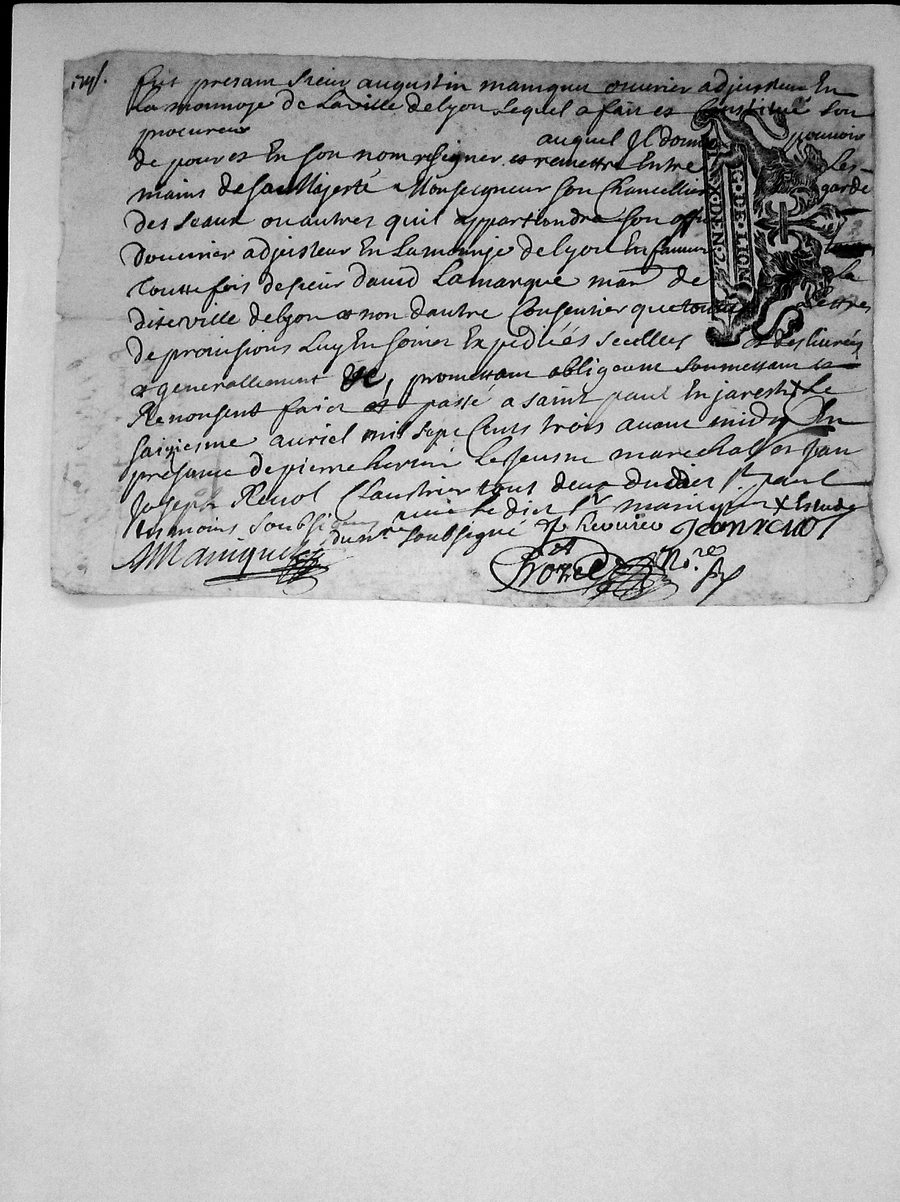 fut presant sieur augustin maniquet ouvrier adjusteur En
La monnoye de La ville de lyon Lequel a fait et Constitué son
procureur auquel Jl donne pouvoir
de pour et En son nom resigner et remettre Entre Les
mains de sa Majesté Monseigneur son Chancellier garde
des seaux ou autres quil appartiendra son offi
Douvrier adjusteur En La monoye de lyon En faveur
touttefois de sieur david Lamarque mar de La
dite ville de lyon et non dautre Consentier que touttes lettres
de provisions Luy En soient Expediées scellees et deslivrées
et generallement &c, promettant obligeant soumettant
Renonsent faict et passé a saint paul En jarest x Le
saiziesme avriel mil sept Cents trois avant midy En
presance de pierre Le jeusne marechal et Jean
Joseph Revol tout deux dudict st paul
tesmoins soubsignes avec Le dict sr maniquet x Estude
du nre soubsigné Jean revol
AManiquet
Crozet No.re